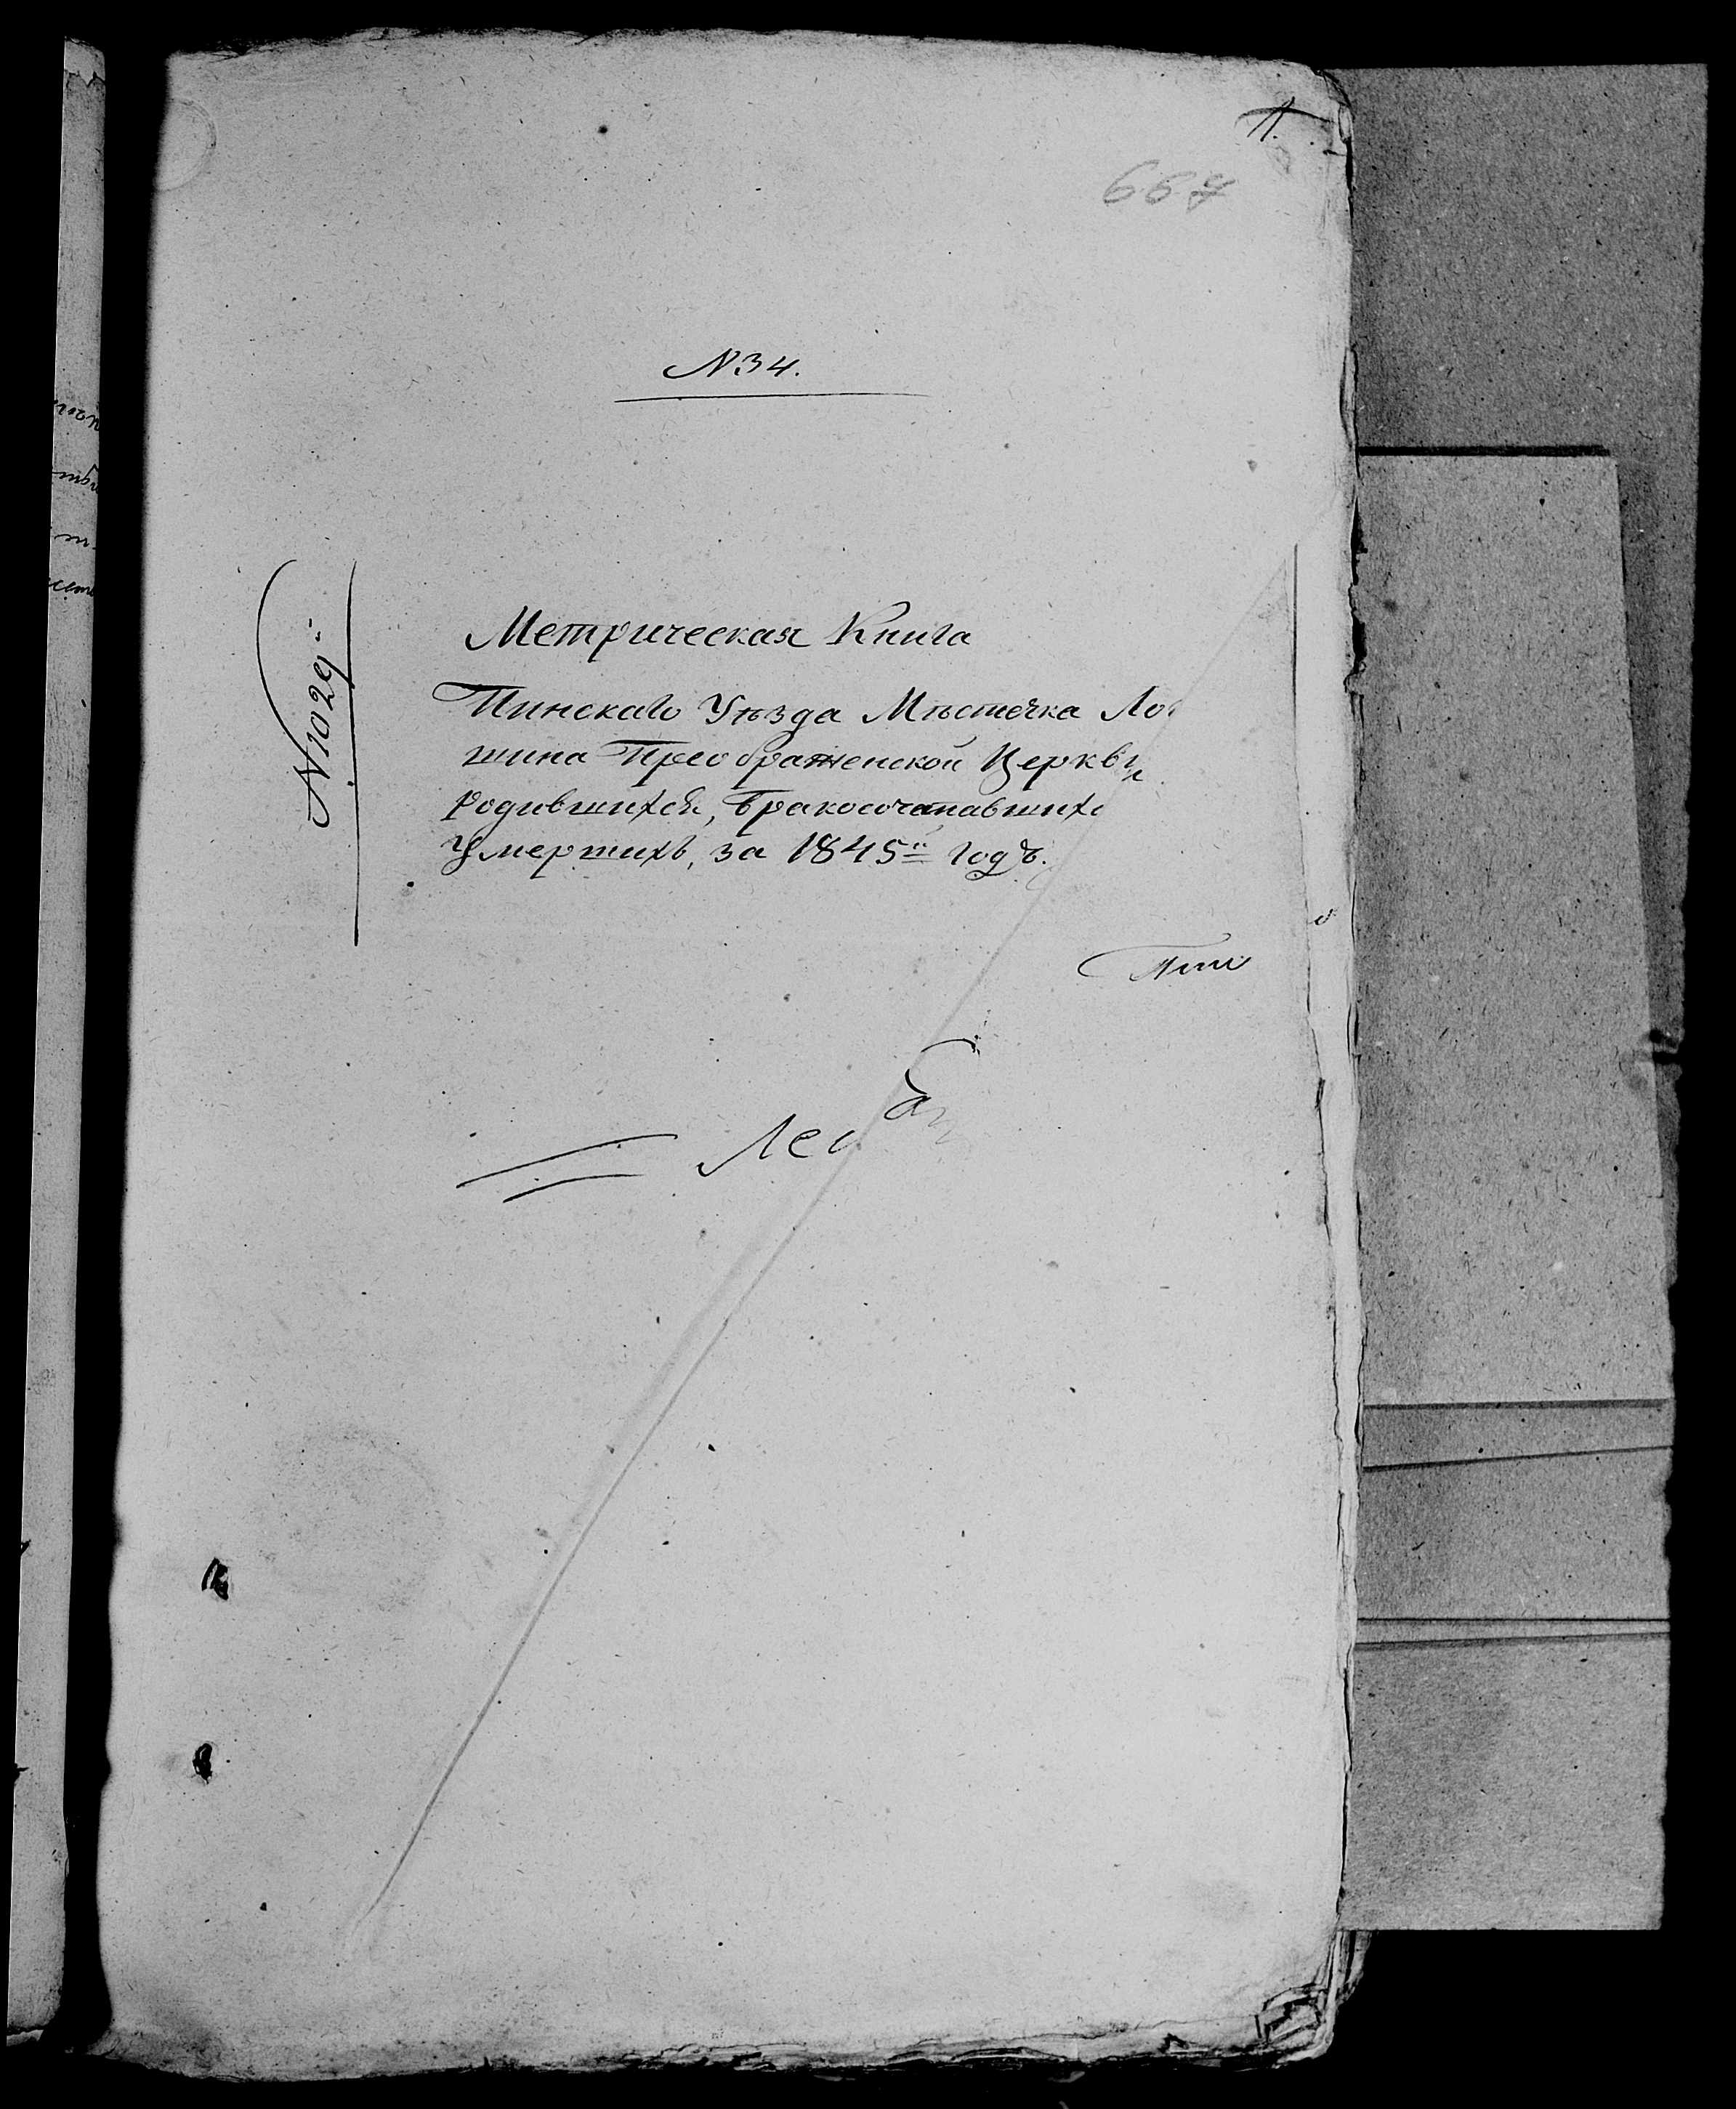 667
N34.
N1029й
Метрическая Книга
Пинскаго Уѣзда Мѣстечка Ло
шина Преображенской Церкви
Родившихся, Бракосочетавшихс
Умершихъ, за 1845й Годъ.